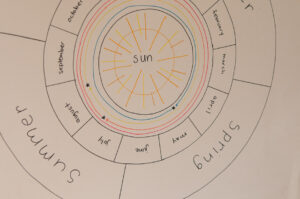 sun
october
september
august
july
june
may
april
march
february
Summer
Spring
er